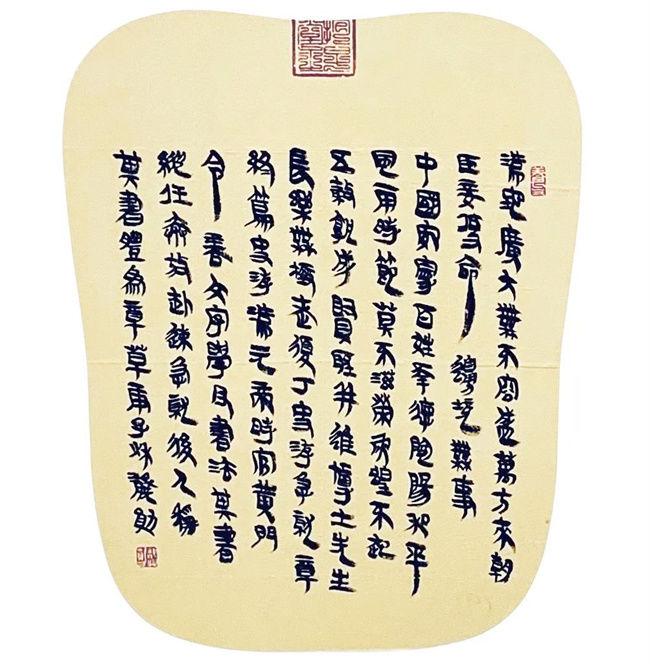 漢地廣大無不容盛萬方來朝
臣妾使命邊境無事
中國安寧百姓承德陰陽和平
風雨時節莫不滋榮災蝗不起
五穀孰成賢聖並進博士先生
長樂無極老復丁史游急就章
終篇史游漢元帝時官黃門
令善文字學及書法其書
縱任奔放赴速急就後人稱
其書體為章草庚子秋發